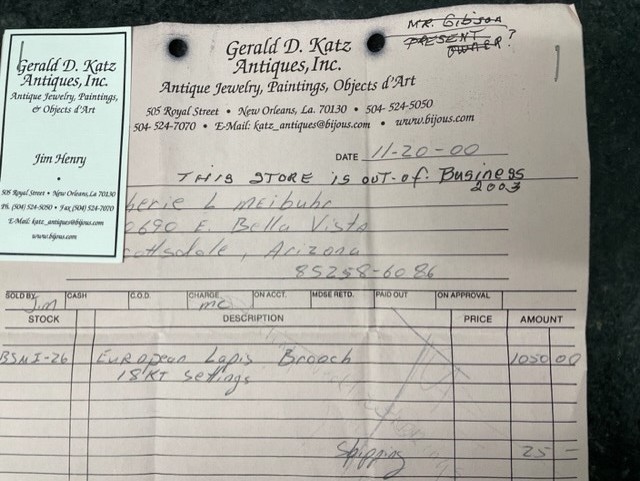 Gerald D. Katz
Antiques, Inc.
Antique Jewelry, Paintings,
& Objects d'Art
Jim Henry
•
505 Royal Street • New Orleans, La 70130
Ph. (504) 524-5050 • Fax (504) 524-7070
E-Mail: katz_antiques@bijous.com
www.bijous.com
MR. GIBSON
PRESENT
OWNER?
Gerald D. Katz
Antiques, Inc.
Antique Jewelry, Paintings, Objects d'Art
505 Royal Street • New Orleans, La. 70130 • 504- 524-5050
504- 524-7070 • E-Mail: katz_antiques@bijous.com • www.bijous.com
DATE 11-20-00
THIS STORE IS OUT-OF. BUSINESS
2003
herie L Meibuhr
0690 E. Bella Vista
cottsdale, Arizona
85258-6086
SOLD BY CASH C.O.D. CHARGE ON ACCT. MDSE RETD. PAID OUT ON APPROVAL
Jim MC
STOCK DESCRIPTION PRICE AMOUNT
BSMI-26 European Lapis Brooch 1050 00
18 KT settings
Shipping 25 —